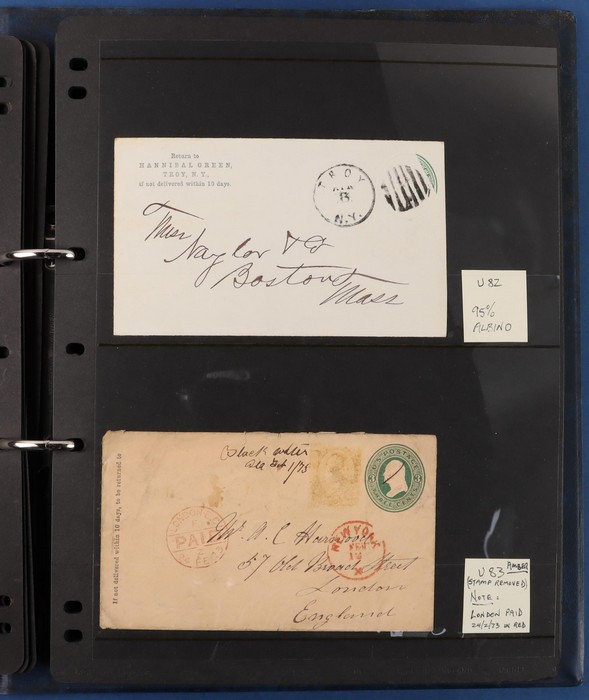 Return to
HANNIBAL GREEN,
TROY, N.Y.,
if not delivered within 10 days.
TROY
N.Y.
Naylor & Co
Boston
Mass
U 82
95%
ALBINO
If not delivered within 10 days, to be returned to
1/73
U.S. POSTAGE
THREE CENTS
LONDON
PAID
NEW YORK
Mr. A. C.
57 Old Broad Street
London
England
U 83 AMBER
(STAMP REMOVED)
NOTE:
LONDON PAID
24/2/73 IN RED